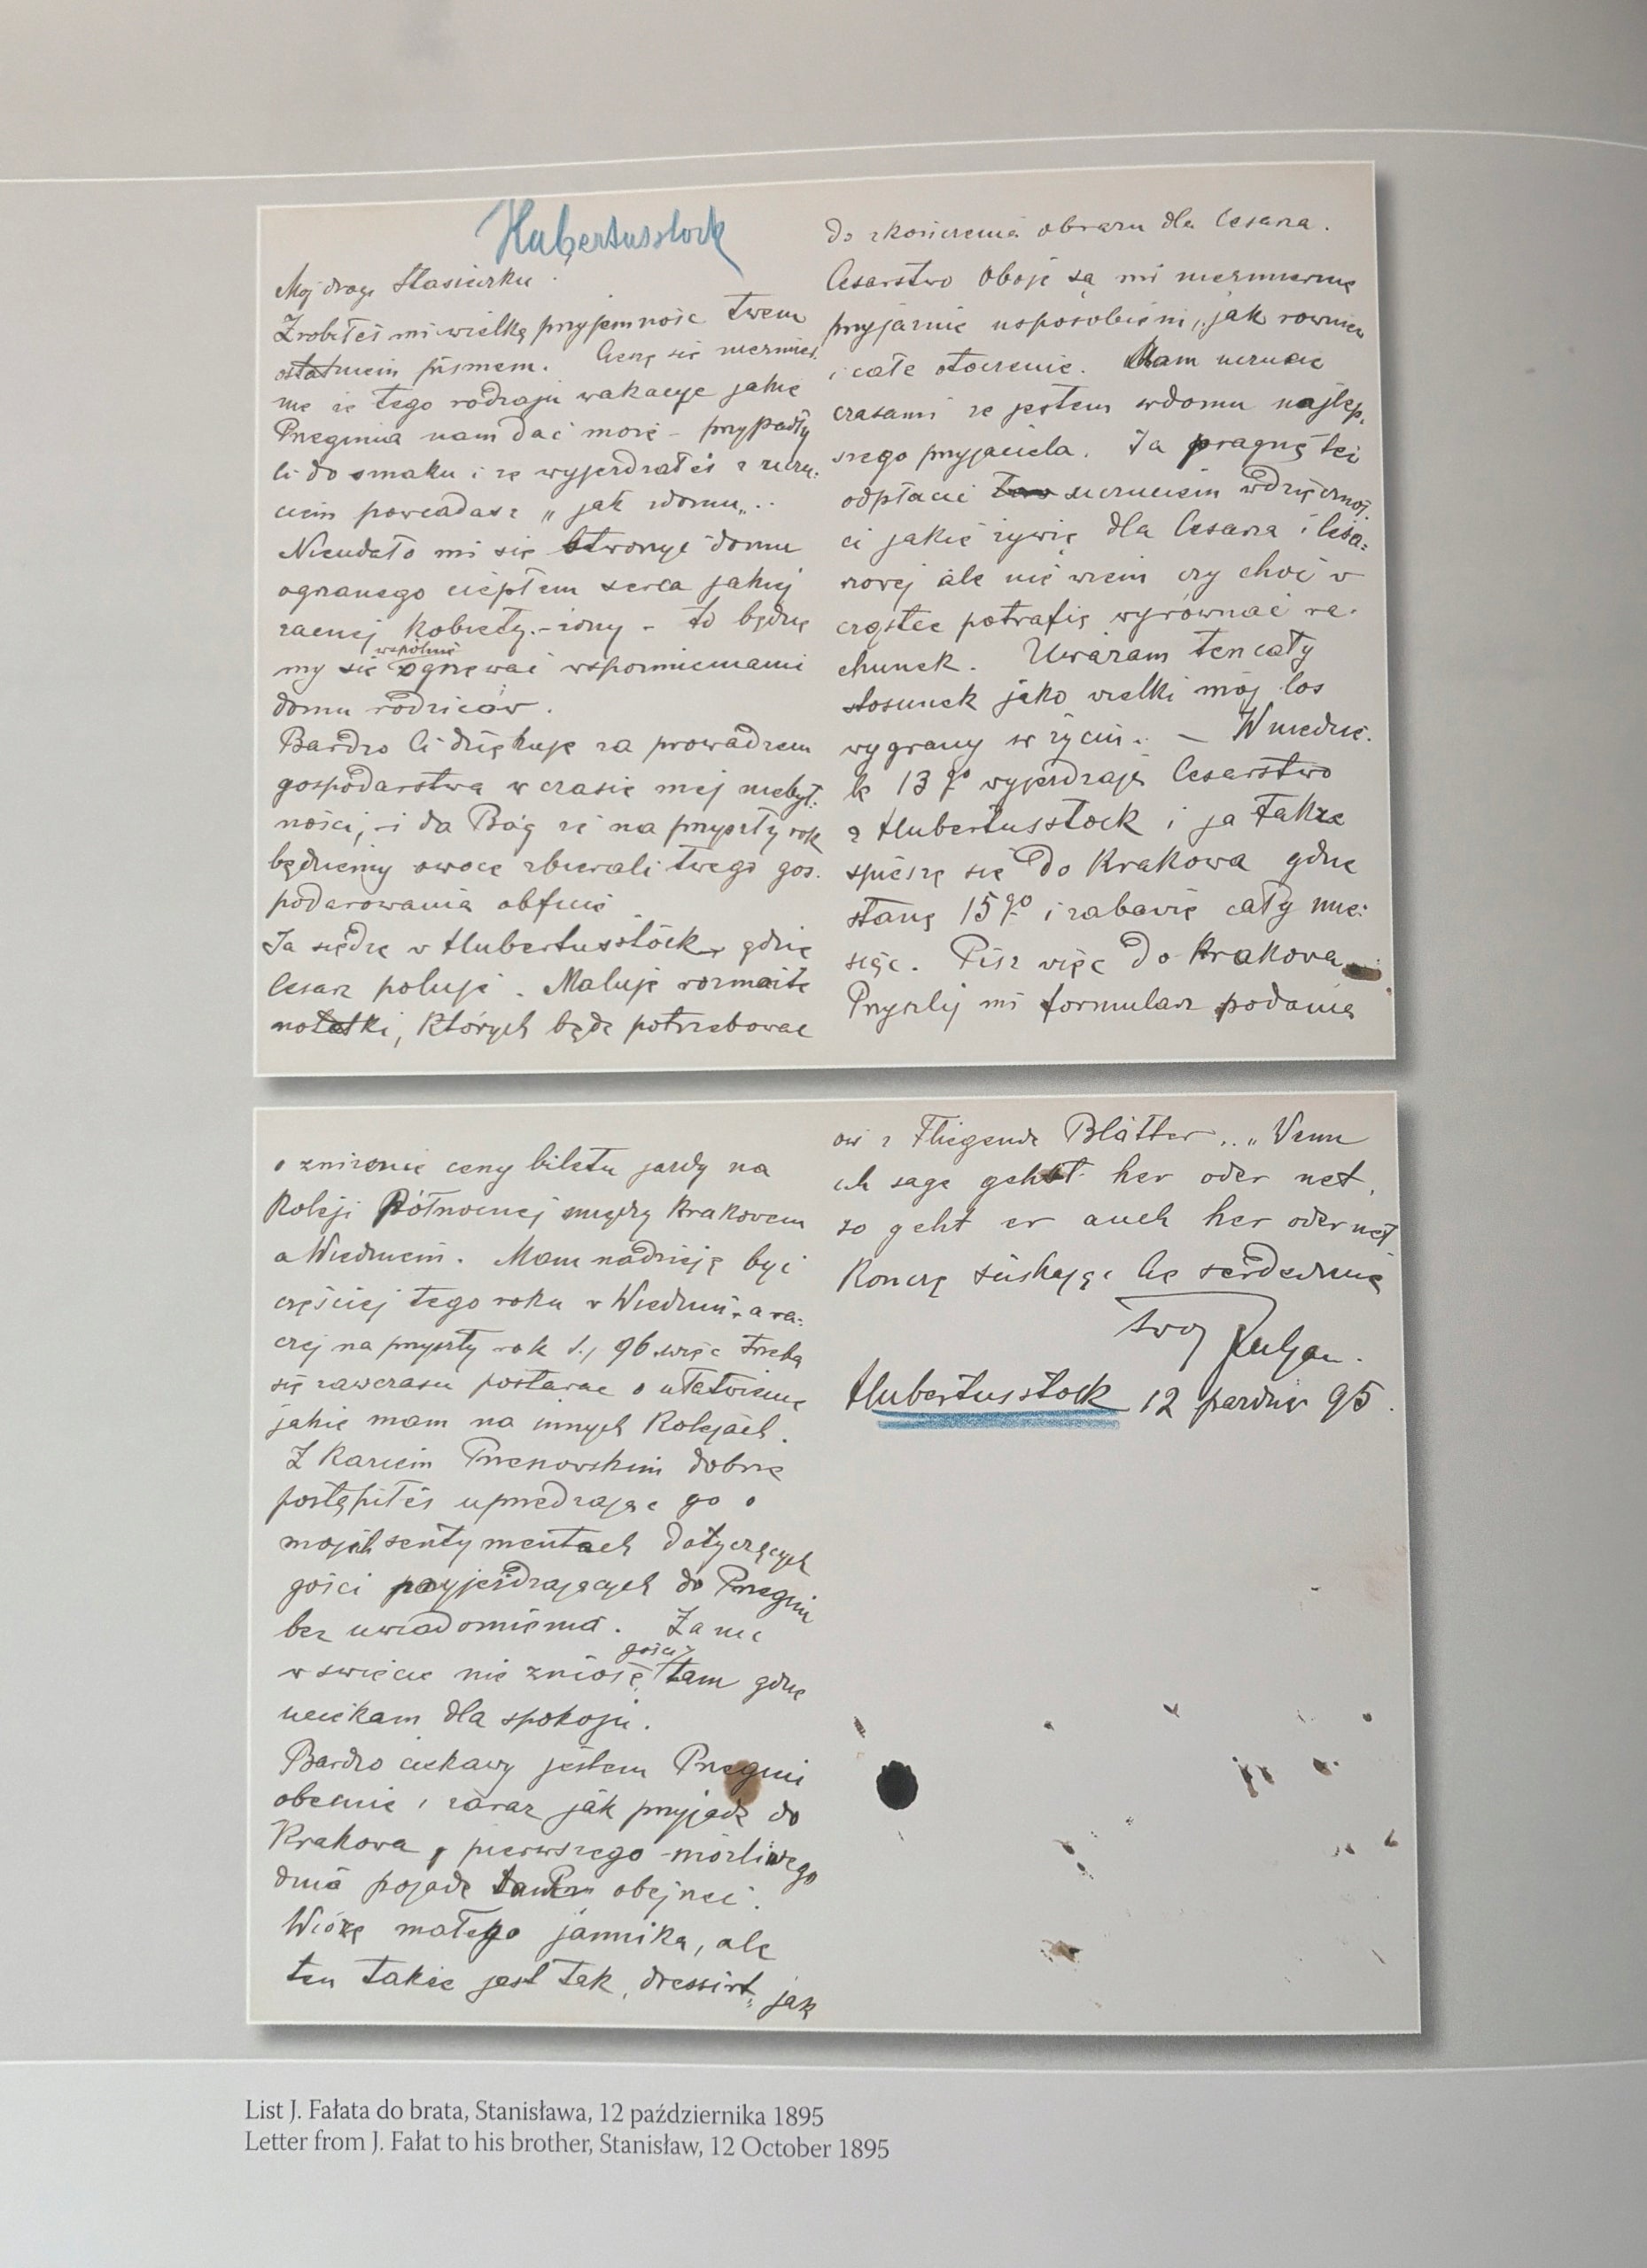 Hubertusstock
Mój drogi Stasieczku.
Zrobiłeś mi wielką przyjemność twem
ostatniem pismem. Cieszę się niezmier.
nie że tego rodzaju wakacye jakie
Przeginia nam dać może – przypadły
Ci do smaku i że wyjeżdżałeś z uczu.
ciem powiadasz „jak z domu„..
Nieudało mi się stworzyć domu
ogrzanego ciepłem serca jakiej
zacnej kobiety – żony – to będzie
wspólnie
my się ogrzewać wspomnieniami
domu rodziców.
Bardzo Ci dziękuję za prowadzenie
gospodarstwa w czasie mej niebyt.
ności, – i da Bóg że na przyszły rok
będziemy owoce zbierali twego gos.
podarowania obficie
Ja siedzę w Hubertusstock, gdzie
Cesarz poluje. Maluję rozmaite
notatki, których będę potrzebować
do skończenia obrazu dla Cesarza.
Cesarstwo oboje są mi niezmiernie
przyjaźnie usposobieni, jak również
i całe otoczenie. Mam uczucie
czasami że jestem w domu najlep.
szego przyjaciela. Ja pragnę też
odpłacić uczuciem wdzięcznoś.
ci jakie żywię dla Cesarza i Cesa=
rzowej ale nie wiem czy choć w
cząstce potrafię wyrównać ra.
chunek. Uważam ten cały
stosunek jako wielki mój los
wygrany w życiu. – W niedzie.
lę 13go wyjeżdżają Cesarstwo
z Hubertusstock i ja także
spieszę się do Krakowa gdzie
stanę 15go i zabawię cały mie=
siąc. Pisz więc do Krakowa
Przyslij mi formularz podania
o zniżenie ceny biletu jazdy na
Kolei Północnej między Krakowem
a Wiedniem. Mam nadzieję być
częściej tego roku w Wiedniu, a ra=
czej na przyszły rok t.j 96 więc trzeba
się zawczasu postarać o ułatwienie
jakie mam na innych kolejach.
Z Kaziem dobrze
postąpiłeś uprzedzając go o
mojich sentymentach dotyczących
gości przyjeżdżających do Przegini
bez uwiadomienia. Za nic
gości
w świecie nie zniosę tam gdzie
uciekam dla spokoju.
Bardzo ciekawy jestem Przegini
obecnie i zaraz jak przyjadę do
Krakowa, pierwszego możliwego
dnia pojadę obejrzeć.
Wiozę małego jamnika, ale
ten także jest tak „dressirt„ jak
ów z Fliegende Blätter.. „Wenn
ich sage gehst her oder net,
so geht er auch her oder net
Kończę ściskając Cię serdecznie
twój Juljan.
Hubertusstock 12 paździer 95.
List J. Fałata do brata, Stanisława, 12 października 1895
Letter from J. Fałat to his brother, Stanisław, 12 October 1895